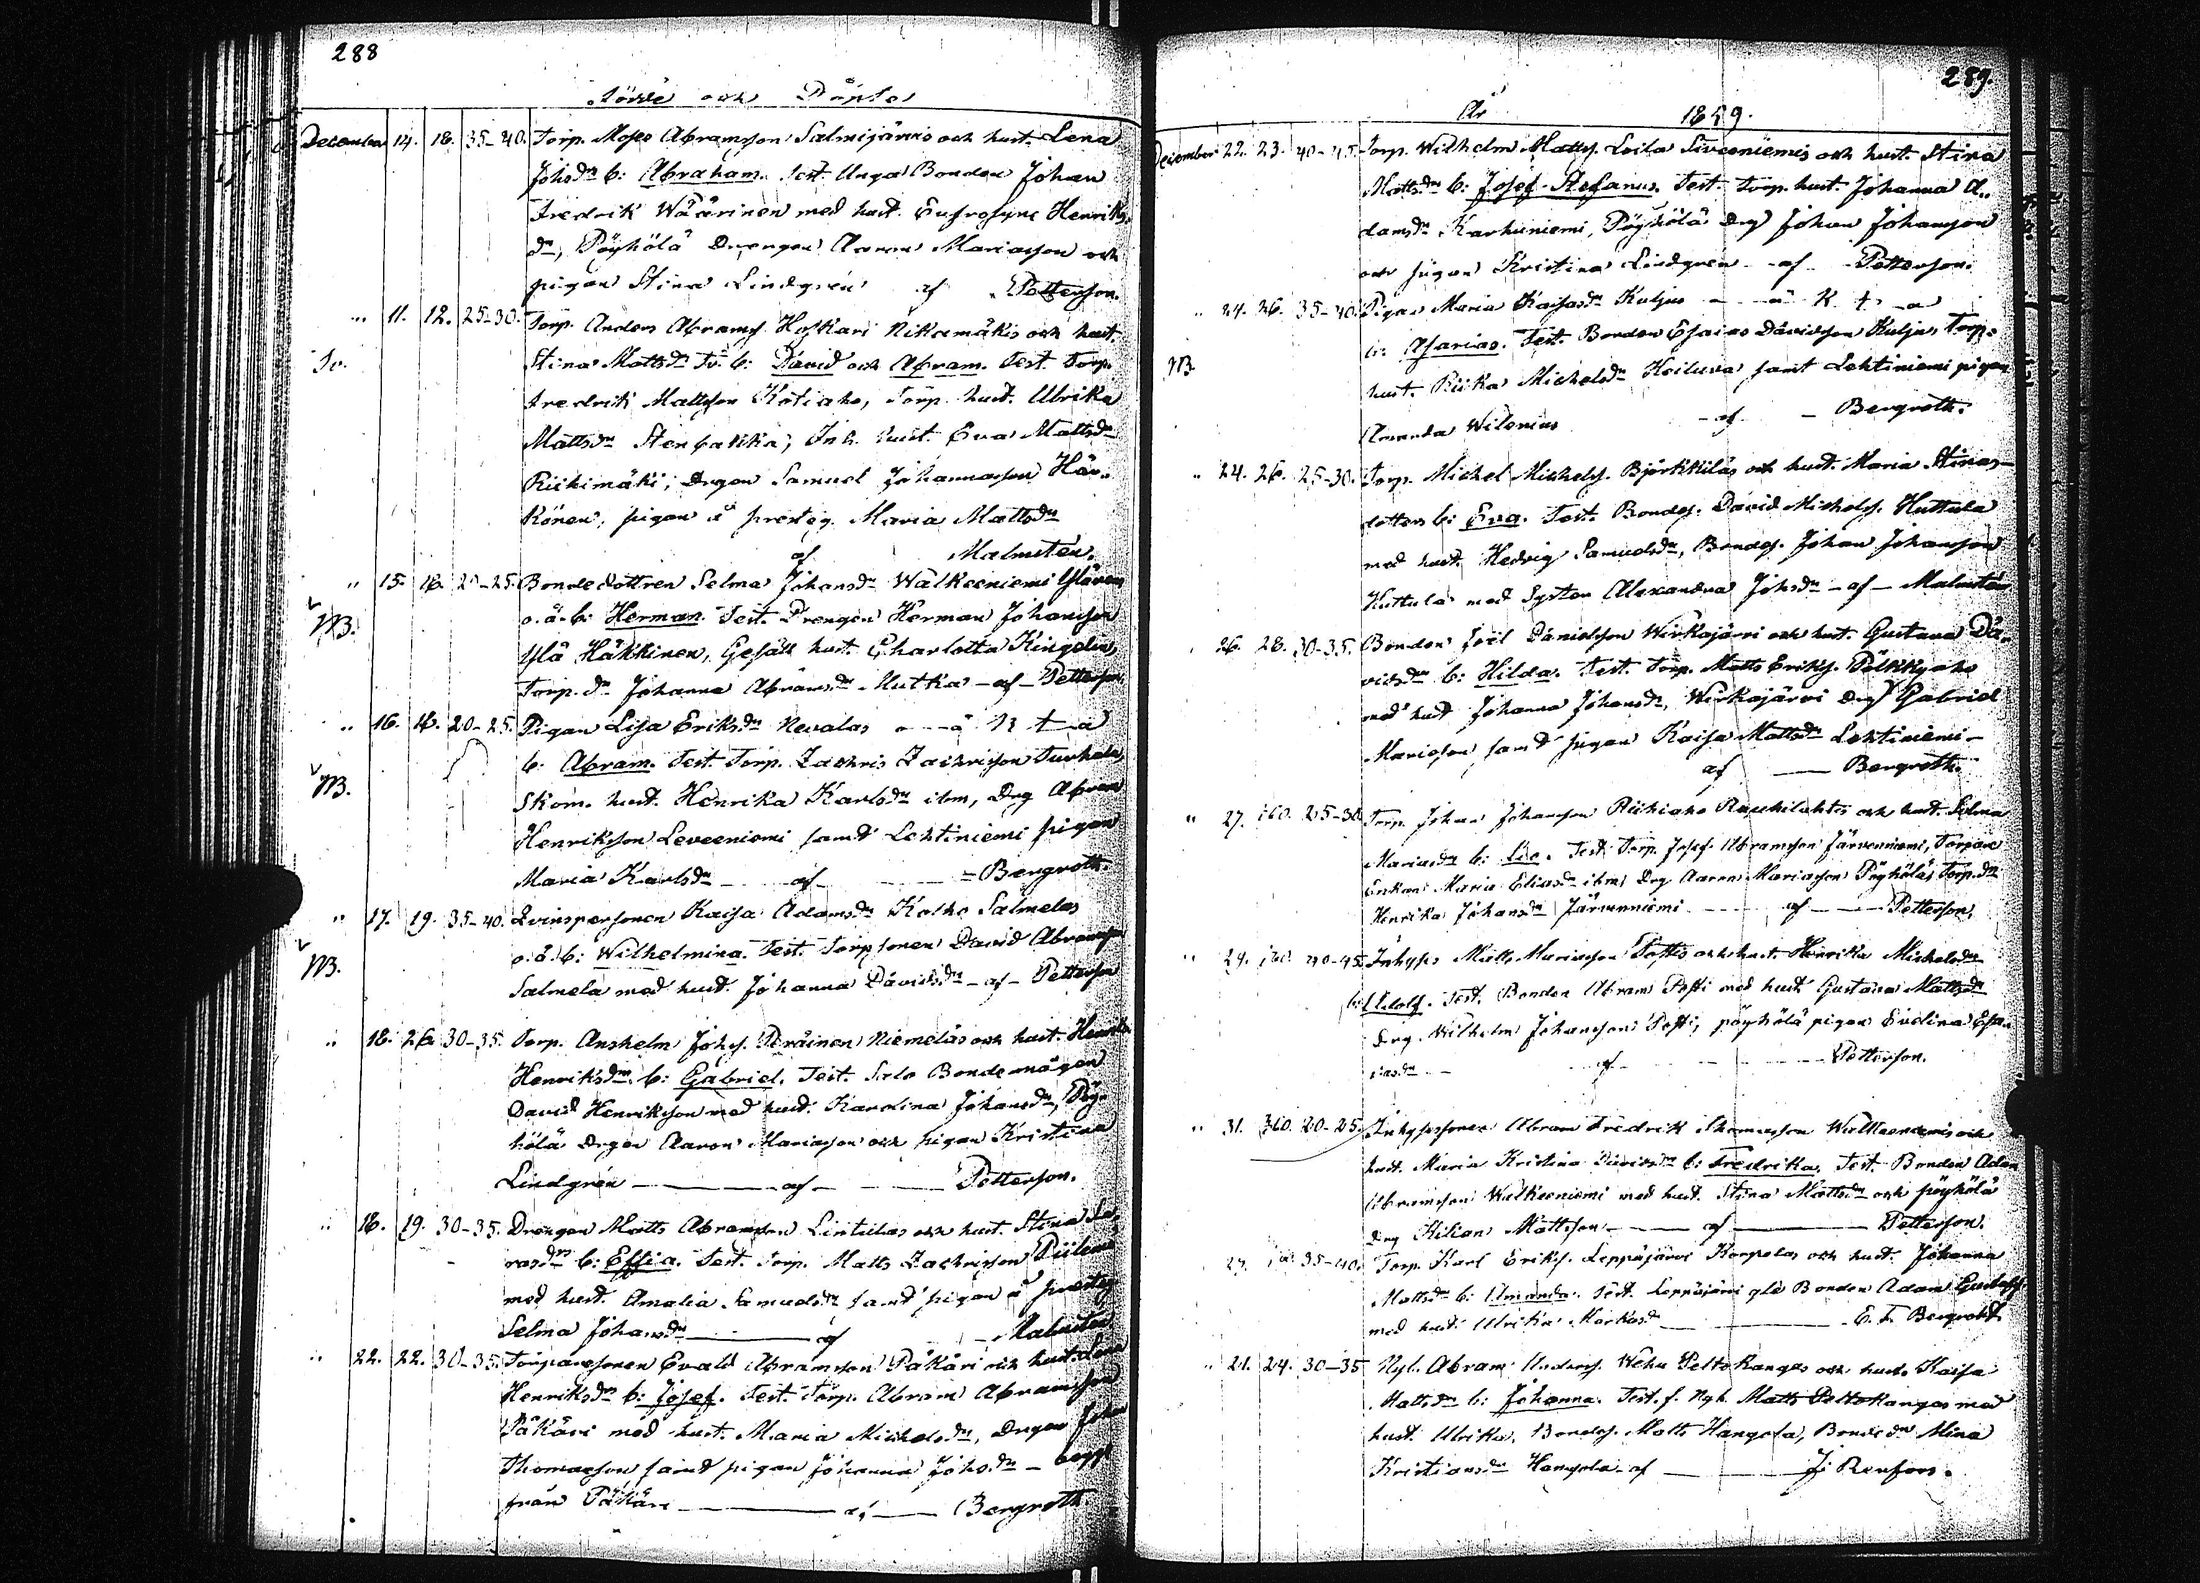 288
Födde och Döpte
December 14. 18. 35-40. Torp. Moses Abramsson Salmijärvis och hust. Lena
Johsdr b: Abraham. Test. Unga Bonden Johan
Fredrik Wäärinen med hust. Eufrosyne Henriks
dr, Pöyhölä Drengen Aaron Mariasson och
pigan Stina Lindgrén af Petterson.
" 11. 12. 25-30. Torp. Anders Abramss. Hoskari Nikamäkis och hust.
Tv. Stina Mattsdr Tv. b: David och Abram. Test. Torp.
Fredrik Mattsson Kotiaho, Torp. hust. Ulrika
Mattsdr Stenbakka, Inh. hust. Eva Mattsdr
Riihimäki, Drgen Samuel Johannasson Här-
könen, pigan å presteg. Maria Mattsdr
af Malmstén.
" 15. 16. 20-25. Bondedottren Selma Johansdr Walkeeniemi
NB. o. ä. b: Herman. Test. Drengen Herman Johansson
Ylä Häkkinen, Gesäll hust. Charlotta Ringelin,
Torp. dr Johanna Abramsdr Mutka - af - Petterson
" 16. 16. 20-25. Pigan Lisa Eriksdr Nevalas
NB. b: Abram. Test. Torp. Zachris Zachrisson Turhala,
Skom. hust. Henrika Karlsdr ibm, Drg Abram
Henriksson Leveeniemi samt Lehtiniemi pigan
Maria Karlsdr - af - Bergroth.
" 17. 19. 35-40. Qvinspersonen Kaisa Adamsdr Kolho Salmelas
NB. o. ä. b: Wilhelmina. Test. Torpsonen David Abramsson
Salmela med hust. Johanna Davidsdr - af - Petterson
" 18. 26. 30-35. Torp. Anshelm Johss. Peräinen Niemeläs och hust. Henrika
Henriksdr b: Gabriel. Test. Bondemågen
David Henriksson med hust. Karolina Johansdr, Pöy-
hölä Drgen Aaron Mariasson och pigan Kristina
Lindgrén - af - Petterson.
" 18. 19. 30-35. Drengen Matts Abramsson Lintulas och hust. Stina
b: Effia. Test. Torp. Matts Zachrisson
med hust. Amalia Samuelsdr samt pigan å presteg
Selma Johansdr - af Malmstén
" 22. 22. 30-35. Torparesonen Evald Abramsson Päkäri och hust. Lena
Henriksdr b: Josef. Test. Torp. Abram Abramsson
Päkäri med hust. Maria Michelsdr, Drgen Johan
Thomasson samt pigan Johanna Johsdr -
från Päkäri - af - Bergroth
289.
År 1859.
December 22. 23. 40-45. Torp. Wilhelm Matts. Loila Siveeniemis och hust. Stina
Mattsdr b: Josef Stefanus. Test. Torp. hust. Johanna A-
damsdr Karhuniemi, Pöyhölä Drg Johan Johansson
och pigan Kristina Lindgren - af - Petterson.
" 24. 26. 35-40. Pigan Maria Kaisasdr Kuljus
NB b: Asarias. Test. Bonden Esaias Davidsson Kuljus, Torp.
hust. Riika Michelsdr Koiluva samt Lehtiniemi pigan
Amanda Wilenius - af - Bergroth.
" 24. 26. 25-30. Torp. Michel Michelss. Björkkiläs och hust. Maria Stinas-
dotter b: Eva. Test. Bondes. David Michelss. Huttula
med hust. Hedvig Samuelsdr, Bondes. Johan Johansson
Huttula med Systern Alexandra Johsdr - af - Malmstén
26. 28. 30-35. Bonden Joel Danielsson Wirkajärvi och hust. Gustava Da-
vidsdr b: Hilda. Test. Torp. Matts Erikss. Pölkkyaho
med hust. Johanna Johansdr, Wirkajärvi Drg Gabriel
Mariasson samt pigan Kaisa Mattsdr Lehtiniemi -
af - Bergroth.
" 27. 25-30 Torp. Johan Johansson Riihiaho Ruuhilahtis och hust. Selma
Mariasdr b: Test. Torp. Josef Abramsson Järvenniemi, Torpare
Enkan Maria Eliasdr ibm, Drg Aaron Mariasson Pöyhölä, Torp. dr
Henrika Johansdr Järvenniemi - af - Petterson.
" 29. 40-45. Inhyses Matts Mariasson Postis och hust. Henrika Michelsdr
b: Adolf. Test. Bonden Abram Posti med hust. Gustava Mattsdr
Drg. Wilhelm Johansson Posti, pöyhölä pigan Evelina Esa-
iasdr - af - Petterson.
" 31. 20-25. Inhysessonen Abram Fredrik Thomasson Walkeeniemis och
hust. Maria Kristina Davidsdr b: Fredrika. Test. Bonden Adam
Abramsson Walkeeniemi med hust. Stina Mattsdr och pöyhölä
drg Kilian Mattsson - af - Petterson.
27. 35-40. Torp. Karl Erikss. Leppäjärvi Korpelas och hust. Johanna
Mattsdr b: Amanda. Test. Leppäjärvi Bonden Adam Gustafss
med hust. Ulrika Markusdr - E. F. Bergroth
" 21. 24. 30-35 Nyb. Abram Anderss. Wehu Peltokangas och hust. Kaisa
Mattsdr b: Johanna. Test. f. Nyb. Matts Peltokangas med
hust. Ulrika, Bondes. Matts Hangola, Bonde dr Mina
Kristiansdr Hangola - af - J. Renfors.